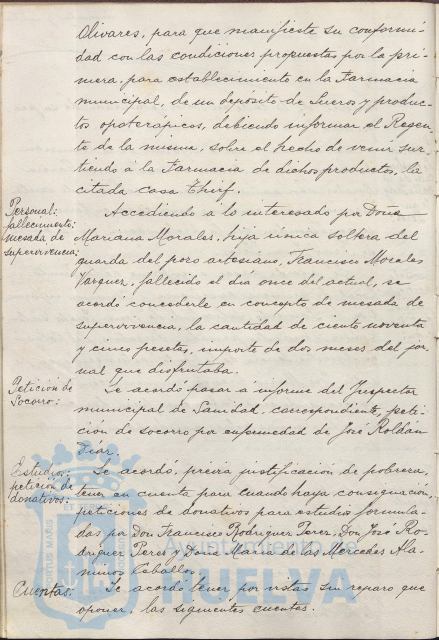 Olivares, para que manifieste su conformi-
dad con las condiciones propuestas por la pri-
mera, para establecimiento en la Farmacia
municipal, de un depósito de Sueros y produc-
tos opoterápicos, debiendo informar el Regen-
te de la misma, sobre el hecho de venir sur-
tiendo á la Farmacia de dichos productos, la
citada casa Thirf.
Personal:
fallecimiento:
mesada de
supervivencia:
Accediendo a lo interesado por Doña
Mariana Morales, hija única soltera del
guarda del pozo artesiano, Francisco Morales
Vazquez, fallecido el día once del actual, se
acordó concederle en concepto de mesada de
supervivencia, la cantidad de ciento noventa
y cinco pesetas, importe de dos meses del jor-
nal que disfrutaba.
Petición de
Socorro:
Se acordó pasar a informe del Inspector
municipal de Sanidad, correspondiente, peti-
ción de socorro por enfermedad de José Roldán
Díaz.
Estudios:
petición de
donativos:
Se acordó, previa justificación de pobreza,
tener en cuenta para cuando haya consignación,
peticiones de donativos para estudios formula-
das por Don Francisco Rodriguez Perez, Don José Ro-
driguez Perez y Doña Maria de las Mercedes Ala-
minos Ceballos.
Cuentas:
Se acordó tener por vistas sin reparo que
oponer, las siguientes cuentas.
PORTUS MARIS
HUELVA